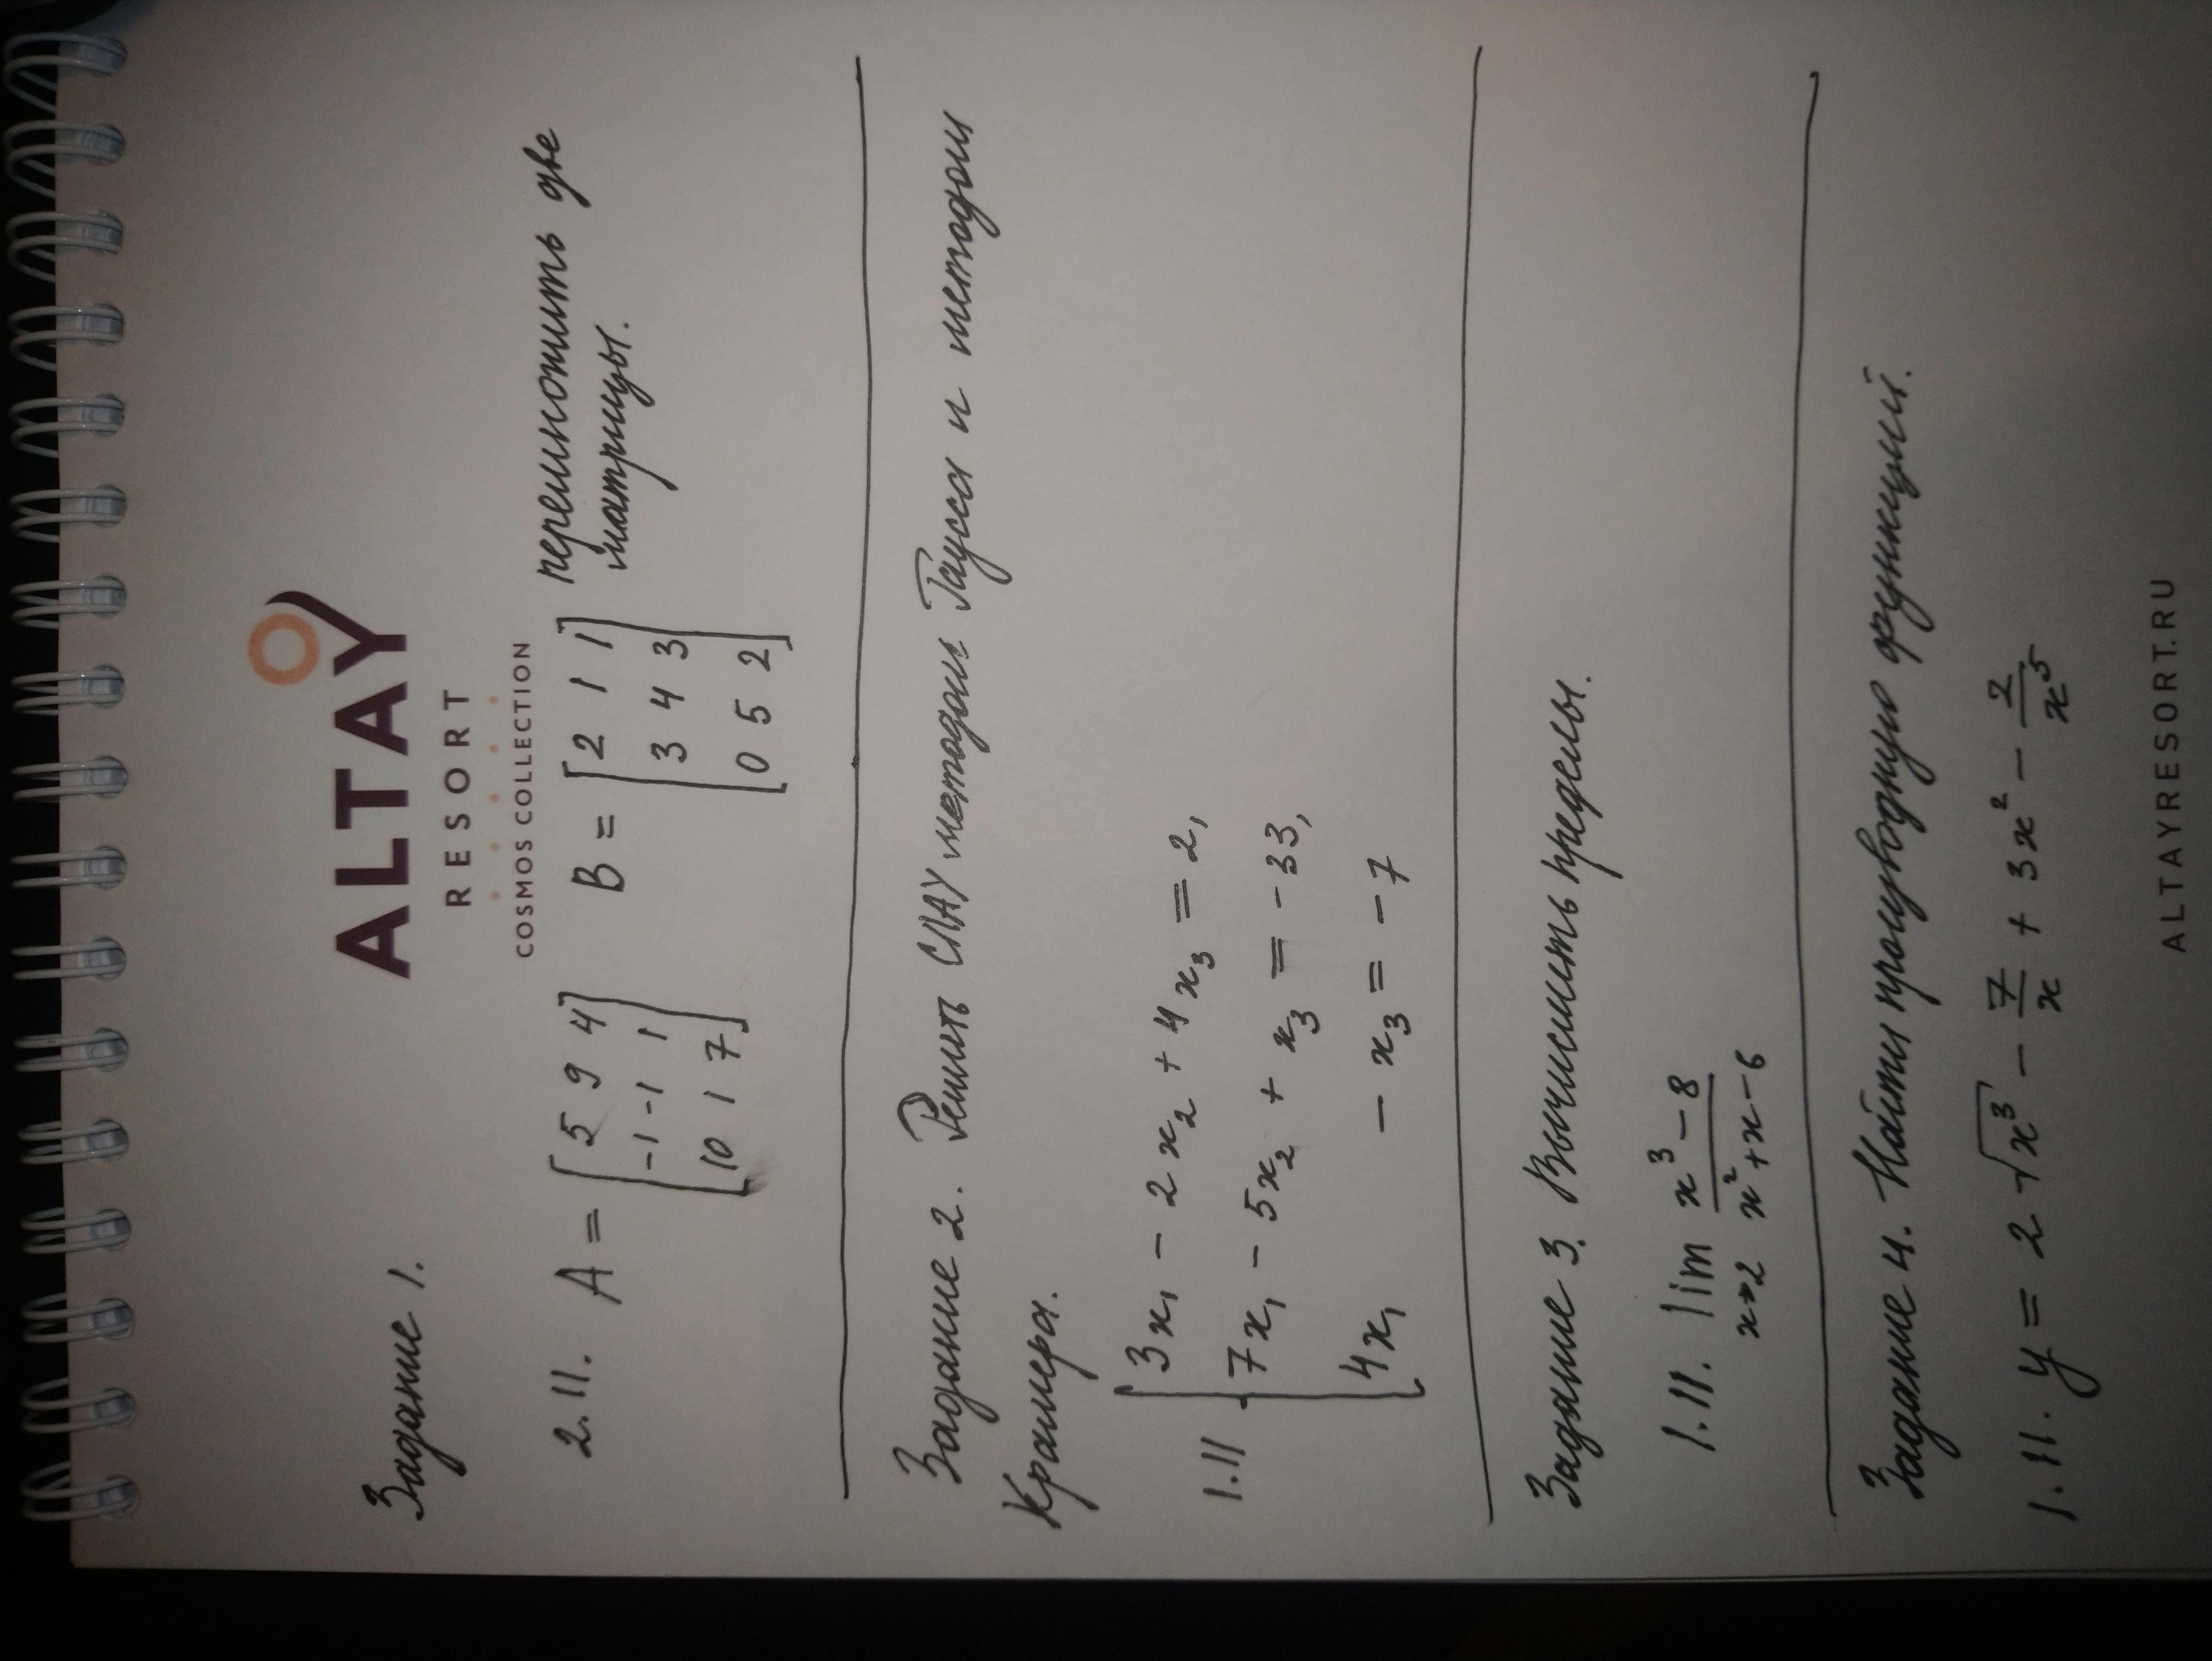 ALTAY
RESORT
COSMOS COLLECTION
Задание 1.
2.11. A = [5 9 4] B = [2 1 1] перемножить две
[-1 -1 1] [3 4 3] матрицы.
[10 1 7] [0 5 2]
Задание 2. Решить СЛАУ методом Гаусса и методом
Крамера.
3x₁ - 2x₂ + 4x₃ = 2,
1.11 { 7x₁ - 5x₂ + x₃ = -33,
4x₁ - x₃ = -7
Задание 3. Вычислить пределы.
1.11. lim x→2 (x³ - 8)/(x² + x - 6)
Задание 4. Найти производную функций.
1.11. y = 2√x³ - 7/x + 3x² - 2/x⁵
ALTAYRESORT.RU